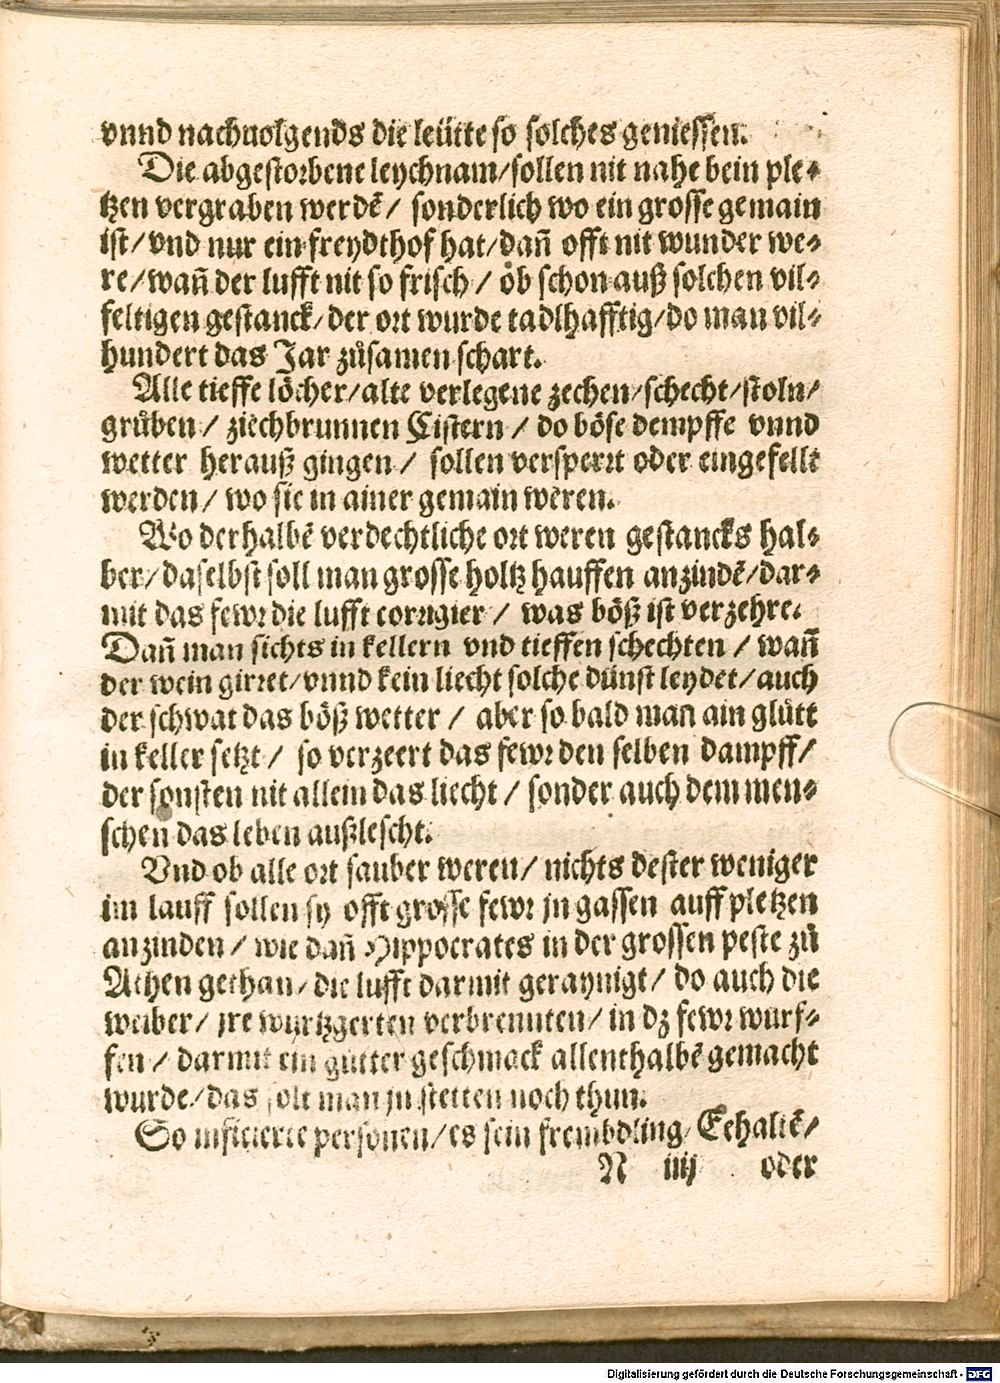 vnnd nachuolgends die leütte so solches geniessen.
Die abgestorbene leychnam/sollen nit nahe bein ple⸗
tzen vergraben werdē/ sonderlich wo ein grosse gemain
ist/vnd nur ein freydthof hat/dañ offt nit wunder we⸗
re/wañ der lufft nit so frisch/ ob schon auß solchen vil⸗
feltigen gestanck/der ort wurde tadlhafftig/do man vil⸗
hundert das Jar zůsamen schart.
Alle tieffe löcher/alte verlegene zechen/schecht/stoln/
grůben/ ziechbrunnen Cistern/ do böse dempffe vnnd
wetter herauß gingen/ sollen versperrt oder eingefellt
werden/ wo sie in ainer gemain weren.
Wo derhalbē verdechtliche ort weren gestancks hal⸗
ber/daselbst soll man grosse holtz hauffen anzindē/dar⸗
mit das fewr die lufft corrigier/ was böß ist verzehre.
Dañ man sichts in kellern vnd tieffen schechten/ wañ
der wein girret/vnnd kein liecht solche dünst leydet/auch
der schwat das böß wetter/ aber so bald man ain glůtt
in keller setzt/ so verzeert das fewr den selben dampff/
der sonsten nit allein das liecht/ sonder auch dem men⸗
schen das leben außlescht.
Vnd ob alle ort sauber weren/ nichts dester weniger
im lauff sollen sy offt grosse fewr jn gassen auff pletzen
anzinden/ wie dañ Hippocrates in der grossen peste zů
Athen gethan/die lufft darmit geraynigt/ do auch die
weiber/ jre wurtzgerten verbrennten/ in dz fewr wurf⸗
fen/ darmit ein gůtter geschmack allenthalbē gemacht
wurde/das solt man jn stetten noch thun.
So inficierte personen/es sein frembdling/Eehaltē/
N iiij oder
Digitalisierung gefördert durch die Deutsche Forschungsgemeinschaft - DFG